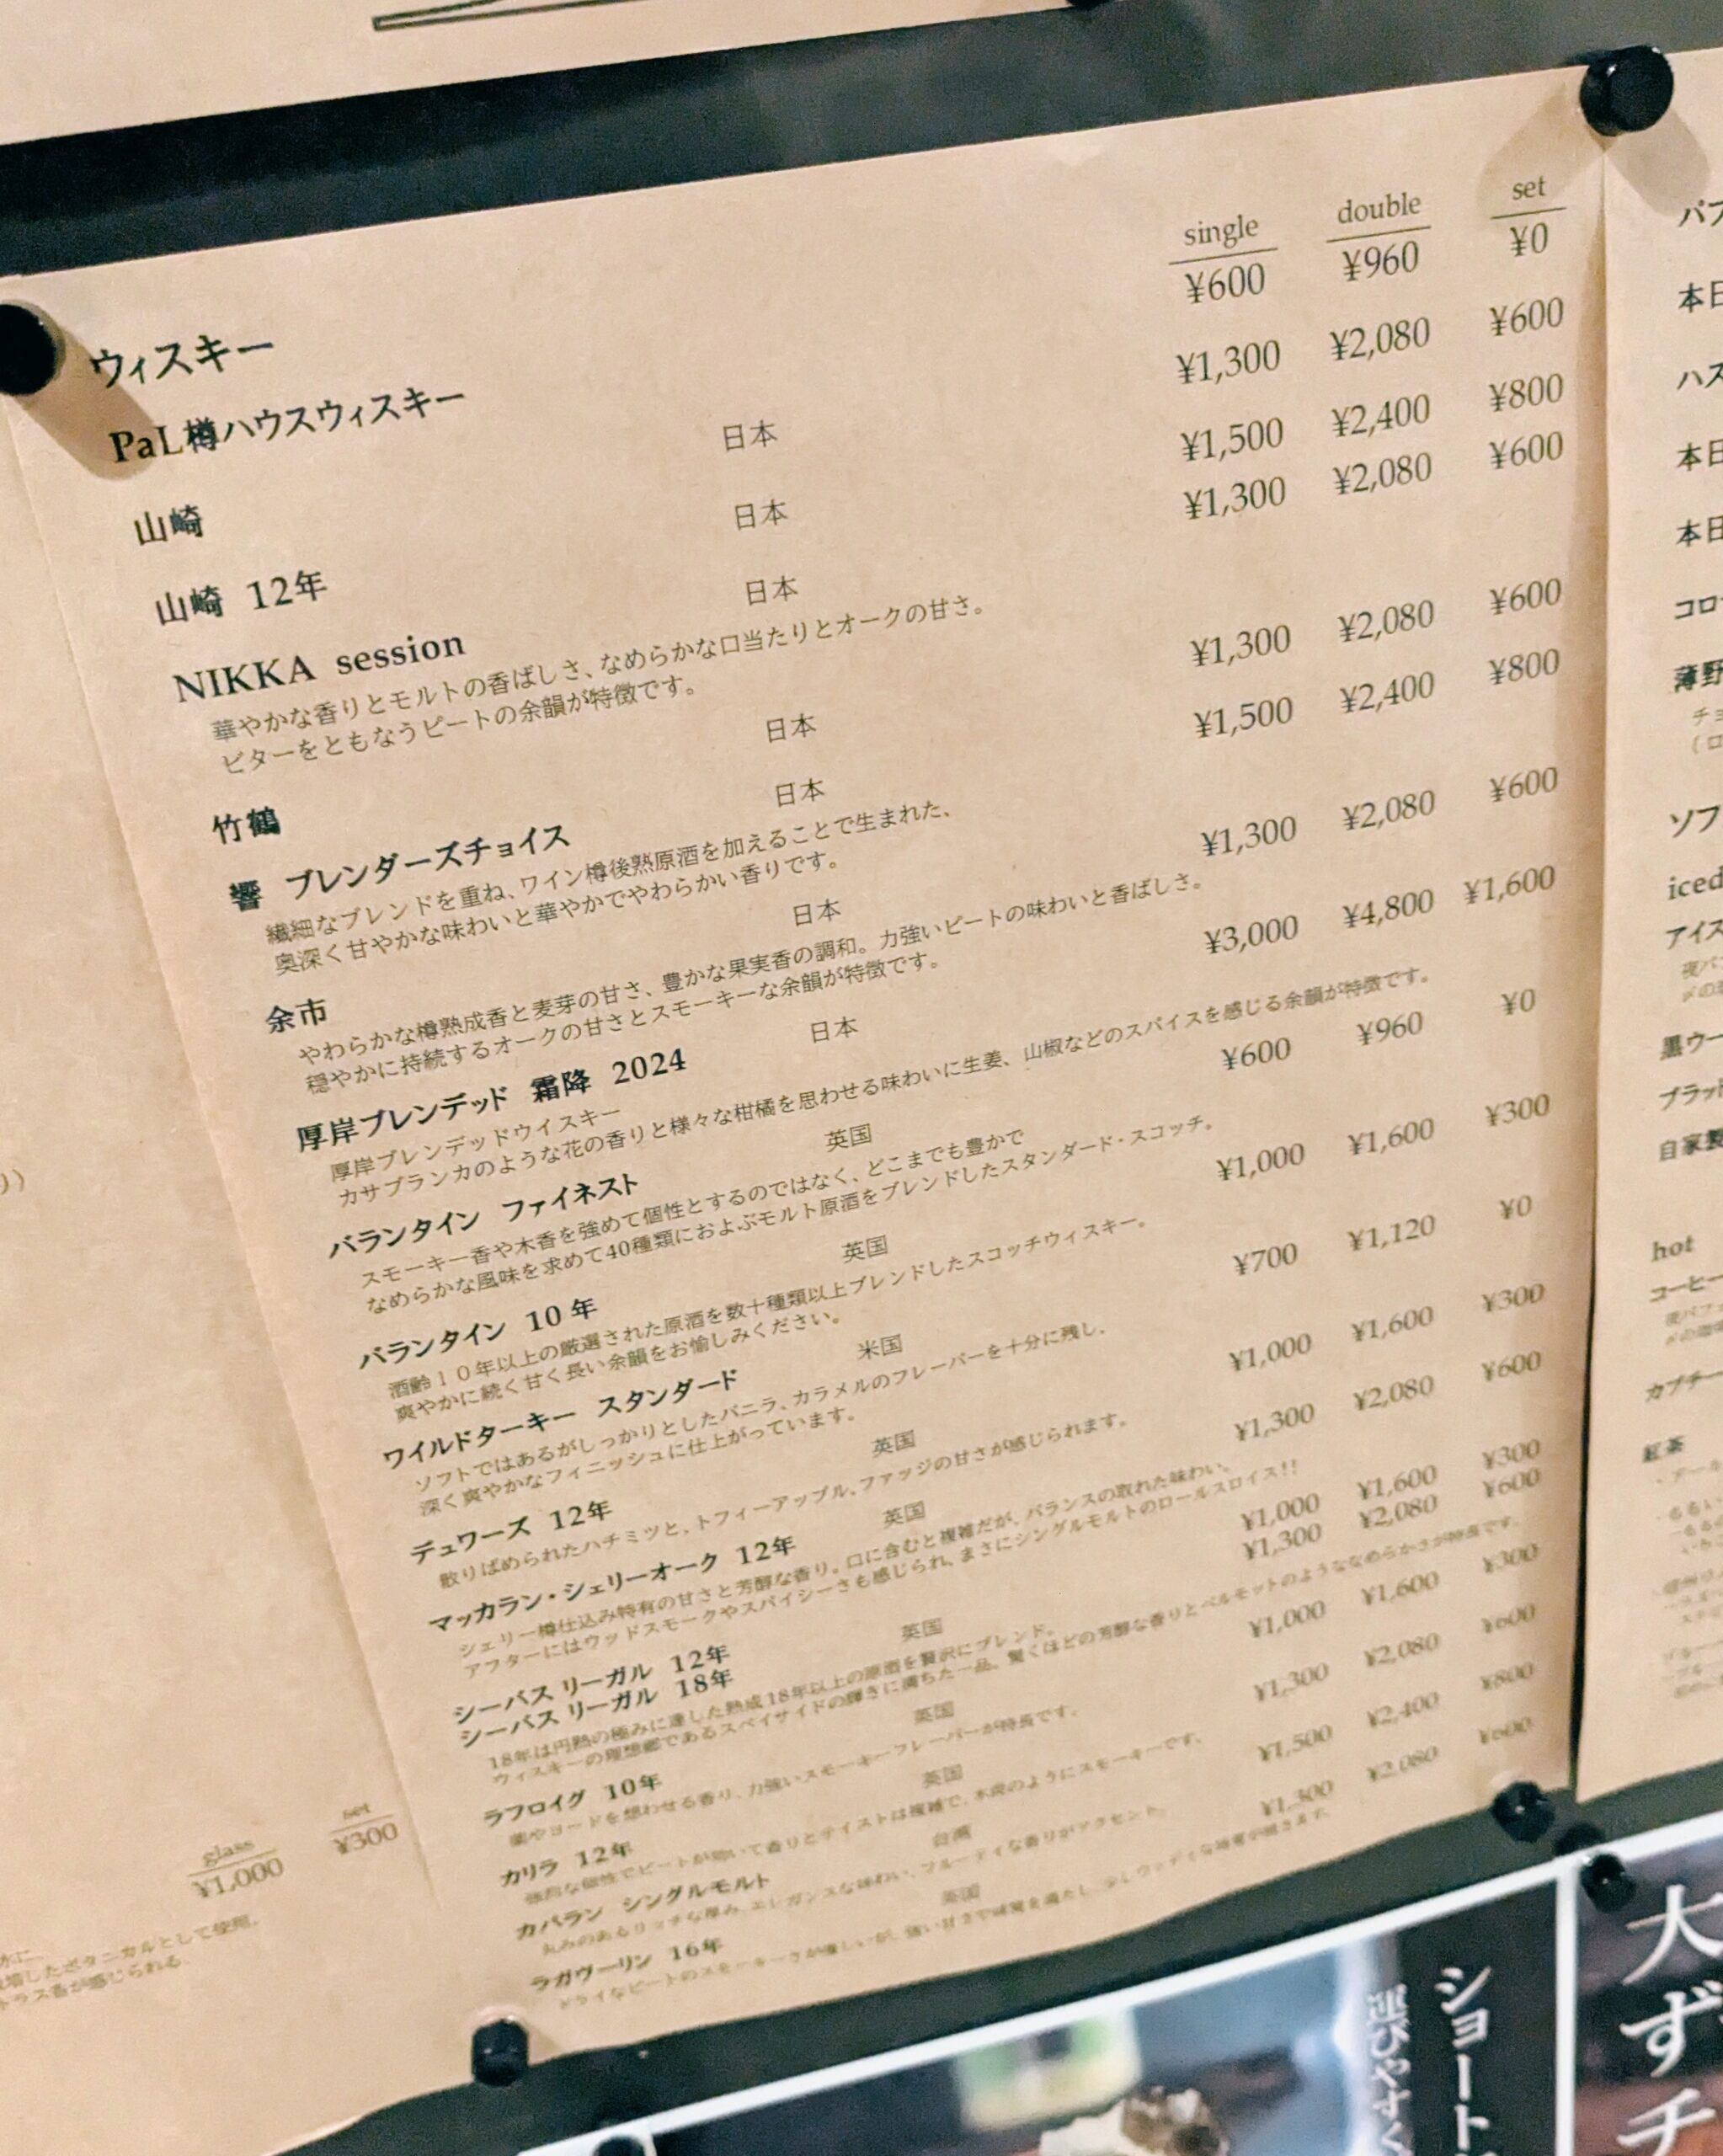 single double set
ウィスキー
PaL樽ハウスウィスキー ¥600 ¥960 ¥0
山崎 日本 ¥1,300 ¥2,080 ¥600
山崎 12年 日本 ¥1,500 ¥2,400 ¥800
NIKKA session 日本 ¥1,300 ¥2,080 ¥600
華やかな香りとモルトの香ばしさ、なめらかな口当たりとオークの甘さ。
ビターをともなうピートの余韻が特徴です。
竹鶴 日本 ¥1,300 ¥2,080 ¥600
響 ブレンダーズチョイス 日本 ¥1,500 ¥2,400 ¥800
繊細なブレンドを重ね、ワイン樽後熟原酒を加えることで生まれた、
奥深く甘やかな味わいと華やかでやわらかい香りです。
余市 日本 ¥1,300 ¥2,080 ¥600
やわらかな樽熟成香と麦芽の甘さ、豊かな果実香の調和。力強いピートの味わいと香ばしさ。
穏やかに持続するオークの甘さとスモーキーな余韻が特徴です。
厚岸ブレンデッド 霜降 2024 日本 ¥3,000 ¥4,800 ¥1,600
厚岸ブレンデッドウイスキー
カサブランカのような花の香りと様々な柑橘を思わせる味わいに生姜、山椒などのスパイスを感じる余韻が特徴です。
バランタイン ファイネスト 英国 ¥600 ¥960 ¥0
スモーキー香や木香を強めて個性とするのではなく、どこまでも豊かで
なめらかな風味を求めて40種類におよぶモルト原酒をブレンドしたスタンダード・スコッチ。
バランタイン 10年 英国 ¥1,000 ¥1,600 ¥300
酒齢１０年以上の厳選された原酒を数十種類以上ブレンドしたスコッチウィスキー。
爽やかに続く甘く長い余韻をお愉しみください。
ワイルドターキー スタンダード 米国 ¥700 ¥1,120 ¥0
ソフトではあるがしっかりとしたバニラ、カラメルのフレーバーを十分に残し、
深く爽やかなフィニッシュに仕上がっています。
デュワーズ 12年 英国 ¥1,000 ¥1,600 ¥300
散りばめられたハチミツと、トフィーアップル、ファッジの甘さが感じられます。
マッカラン・シェリーオーク 12年 英国 ¥1,300 ¥2,080 ¥600
シェリー樽仕込み特有の甘さと芳醇な香り。口に含むと複雑だが、バランスの取れた味わい。
アフターにはウッドスモークやスパイシーさも感じられ、まさにシングルモルトのロールスロイス!!
シーバス リーガル 12年 ¥1,000 ¥1,600 ¥300
シーバス リーガル 18年 英国 ¥1,300 ¥2,080 ¥600
18年は円熟の極みに達した熟成18年以上の原酒を贅沢にブレンド。
ウィスキーの理想郷であるスペイサイドの輝きに満ちた一品。驚くほどの芳醇な香りとベルモットのようななめらかさが特長です。
ラフロイグ 10年 英国 ¥1,000 ¥1,600 ¥300
ヨードを想わせる香り、力強いスモーキーフレーバーが特長です。
カリラ 12年 英国 ¥1,300 ¥2,080 ¥600
香りとテイストは複雑で、のようにスモーキーです。
カバラン シングルモルト 台湾 ¥1,500 ¥2,400 ¥800
な味わい、フルーティな香りがアクセント。
ラガヴーリン 16年 英国 ¥1,300 ¥2,080 ¥600
ドライなピートの
glass set
¥1,000 ¥300
ボタニカルとして使用。
香が感じられる。
本日
本日
本日
コロ
薄野
チョ
ソフ
iced
アイス
黒ウー
ブラッ
自家製
hot
コーヒー
カプチー
紅茶
ショート
運びやすく
大
ず
チ